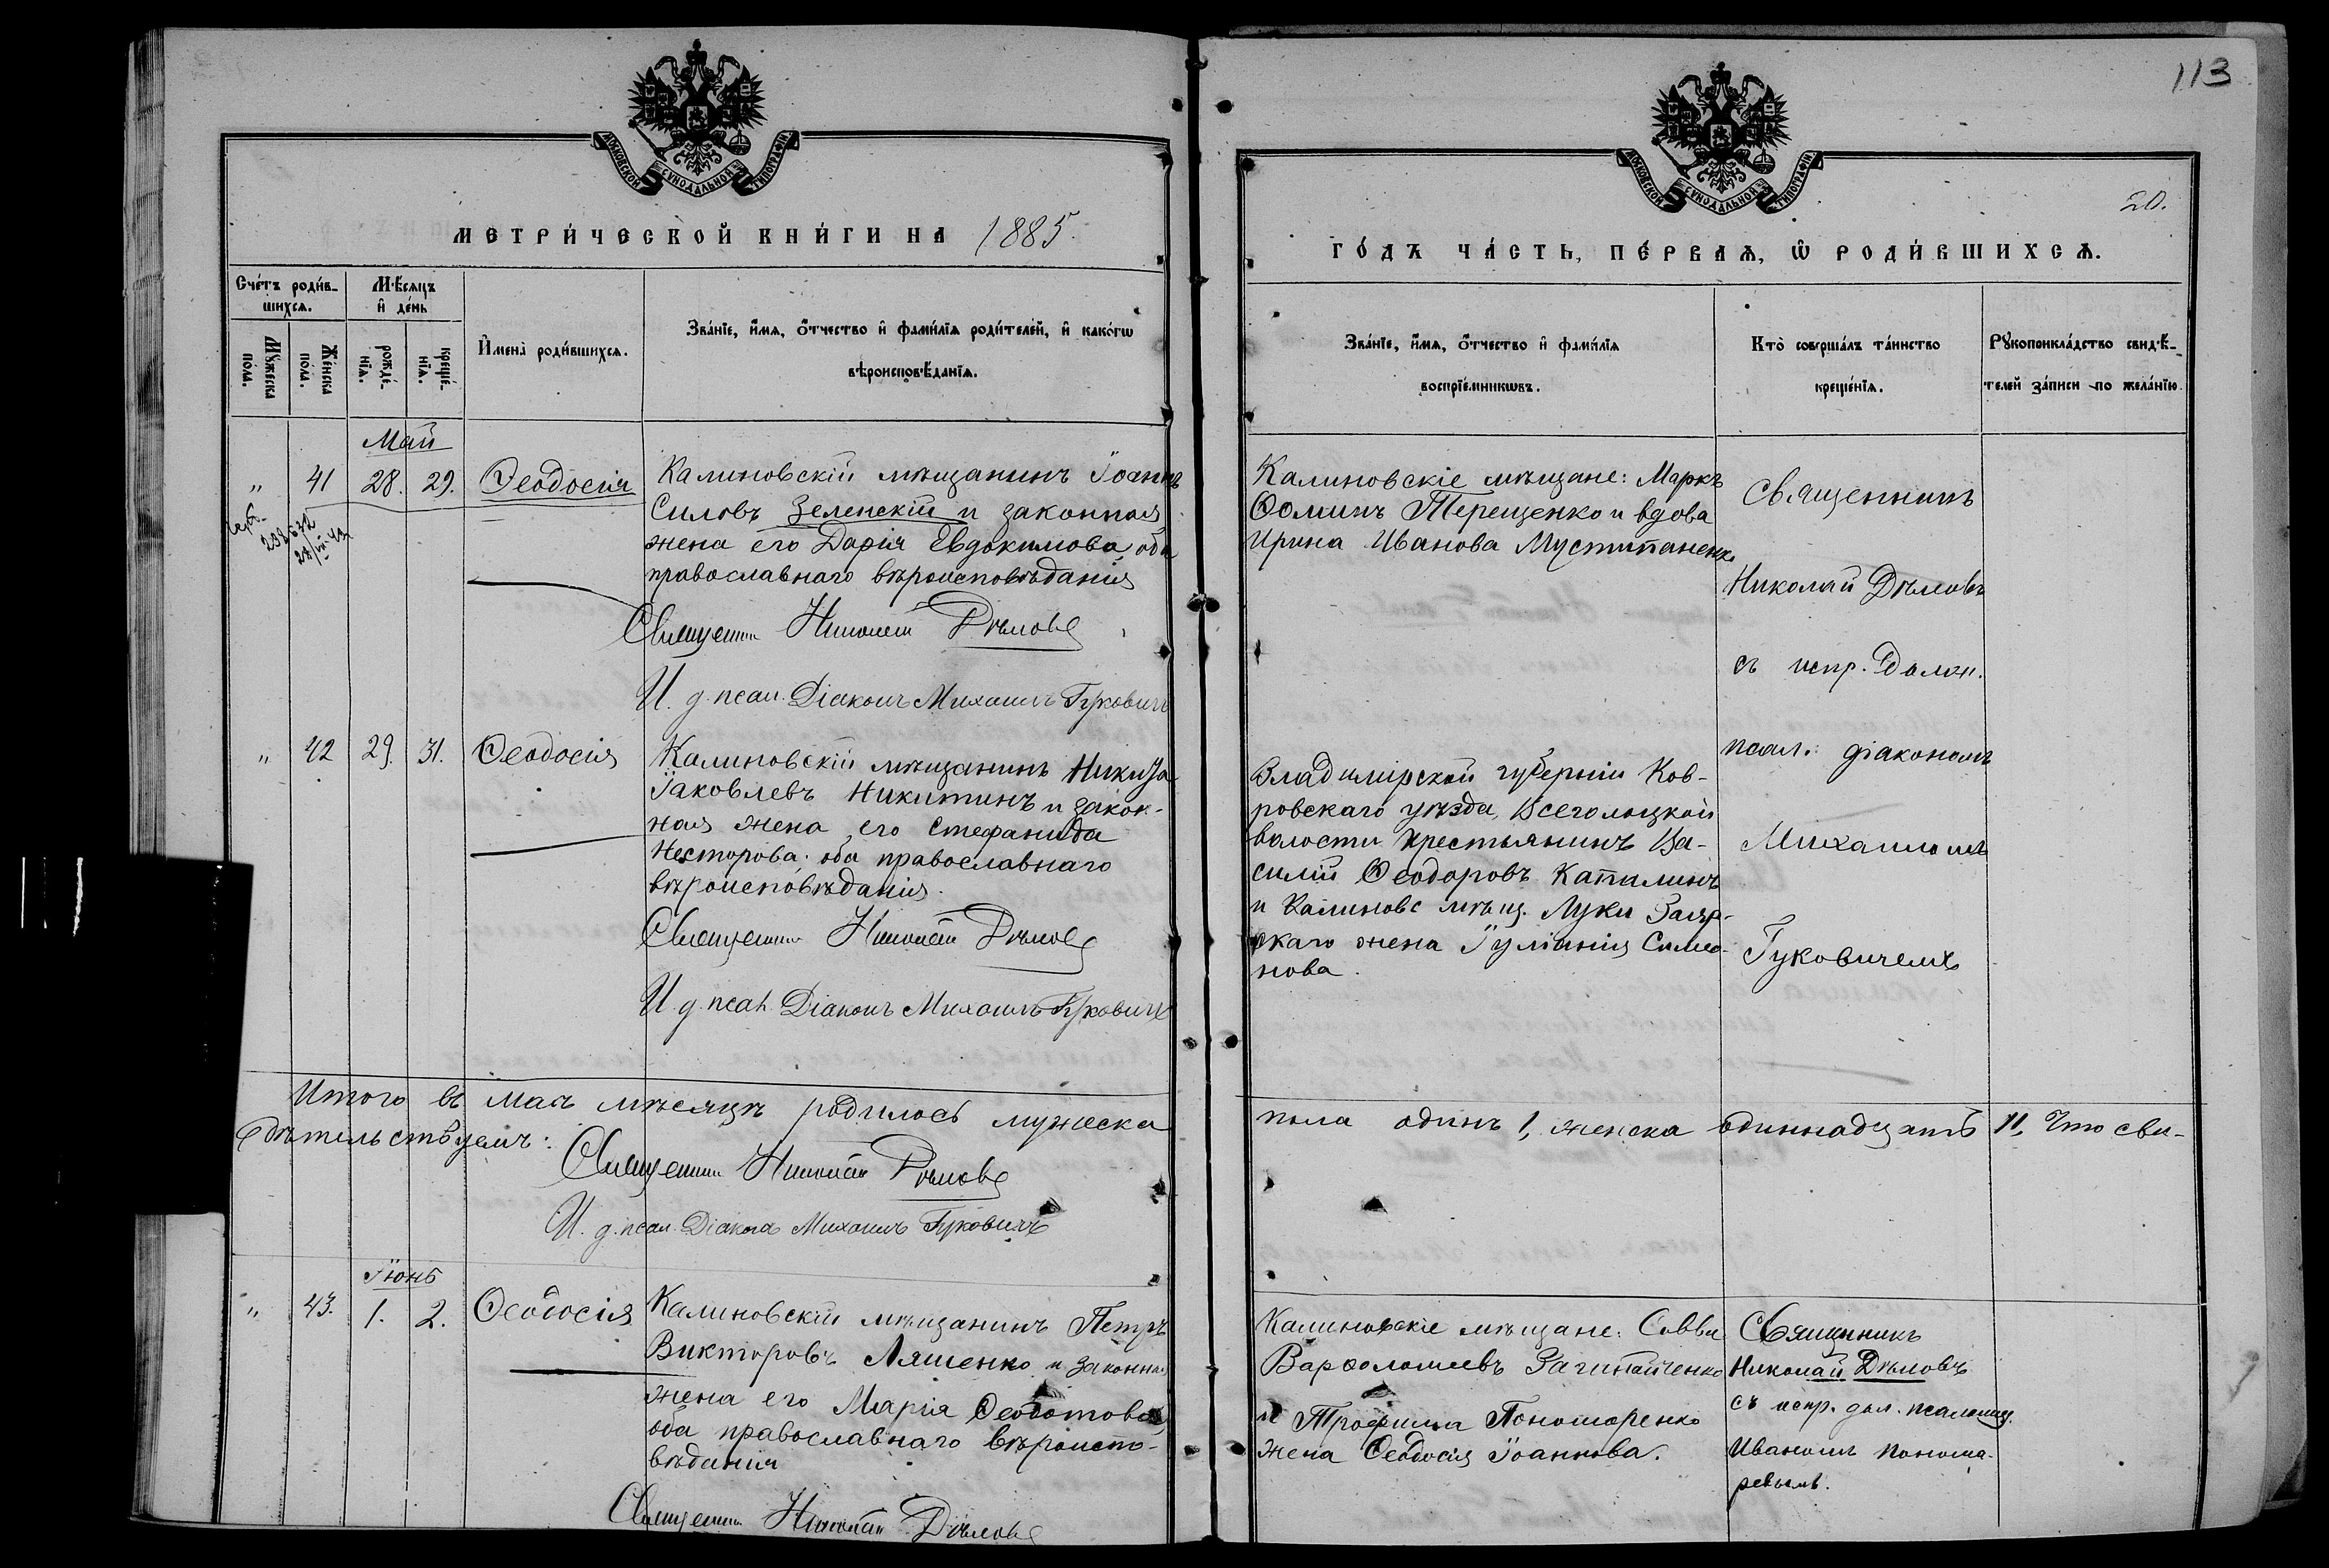 113
МОСКОВСКОЙ СѴНОДАЛЬНОЙ ТИПОГРАФІИ
МОСКОВСКОЙ СѴНОДАЛЬНОЙ ТИПОГРАФІИ
20.
МЕТРИ́ЧЕСКОЙ КНИ́ГИ НА 1885.
ГО́ДЪ ЧА́СТЬ, ПЕ́РВАѦ, Ѡ РОДИ́ВШИХСѦ.
Сче́тъ роди́в-
шихсѧ.
Мꙋ́жеска
по́ла.
Же́нска
по́ла.
Мѣ́сѧцъ
и҆ де́нь
рожде́-
нїѧ.
креще́-
нїѧ.
И҆мена̀ роди́вшихсѧ.
Зва́нїе, и҆́мѧ, ѻ҆́тчество и҆ фами́лїѧ роди́телей, и҆ како́гѡ
вѣроисповѣ́данїѧ.
Зва́нїе, и҆́мѧ, ѻ҆́тчество и҆ фами́лїѧ
воспрїе́мникѡвъ.
Кто̀ соверша́лъ та́инство
креще́нїѧ.
Рꙋкоприкла́дство свидѣ́-
телей за́писи по жела́нїю.
Май
„ 41 28. 29. Ѳеодосія
Калиновскій мѣщанинъ Іоаннъ
Силовъ Зеленскій и законная
жена его Дарія Евдокимова, оба
православнаго вѣроисповѣданія
Священникъ Николай Дѣловъ
И. д. псал. Діаконъ Михаилъ Гуковичъ
Калиновскіе мѣщане: Маркъ
Ѳоминъ Терещенко и вдова
Ирина Иванова
Священникъ
Николай Дѣловъ
съ испр. должн.
псал. діакономъ
Михаиломъ
Гуковичемъ
„ 42 29. 31. Ѳеодосія
Калиновскій мѣщанинъ Никита
Іаковлевъ Никитинъ и закон-
ная жена его Стефанида
Несторова. оба православнаго
вѣроисповѣданія.
Священникъ Николай Дѣловъ
И. д. псал. Діаконъ Михаилъ Гуковичъ
Владимірской губерніи Ков-
ровскаго уѣзда, Всегодицкой
волости крестьянинъ Ва-
силій Ѳеодоровъ
и Калиновс мѣщ. Луки
жена Іуліанія Симео-
нова.
Итого въ маѣ мѣсяцѣ родилось мужеска пола одинъ 1, женска одиннадцать 11, Что сви-
дѣтельствуемъ:
Священникъ Николай Дѣловъ
И. д. псал. Діаконъ Михаилъ Гуковичъ
Іюнь
„ 43. 1. 2. Ѳеодосія
Калиновскій мѣщанинъ Петръ
Викторовъ Ляшенко и законная
жена его Марія Ѳеодотова,
оба православнаго вѣроиспо-
вѣданія
Священникъ Николай Дѣловъ
Калиновскіе мѣщане: Савва
Варѳоломеевъ
и Трофима Пономаренко
жена Ѳеодосія Іоаннова.
Священникъ
Николай Дѣловъ
съ испр. дол. псаломщ.
Иваномъ Понома-
ревымъ.